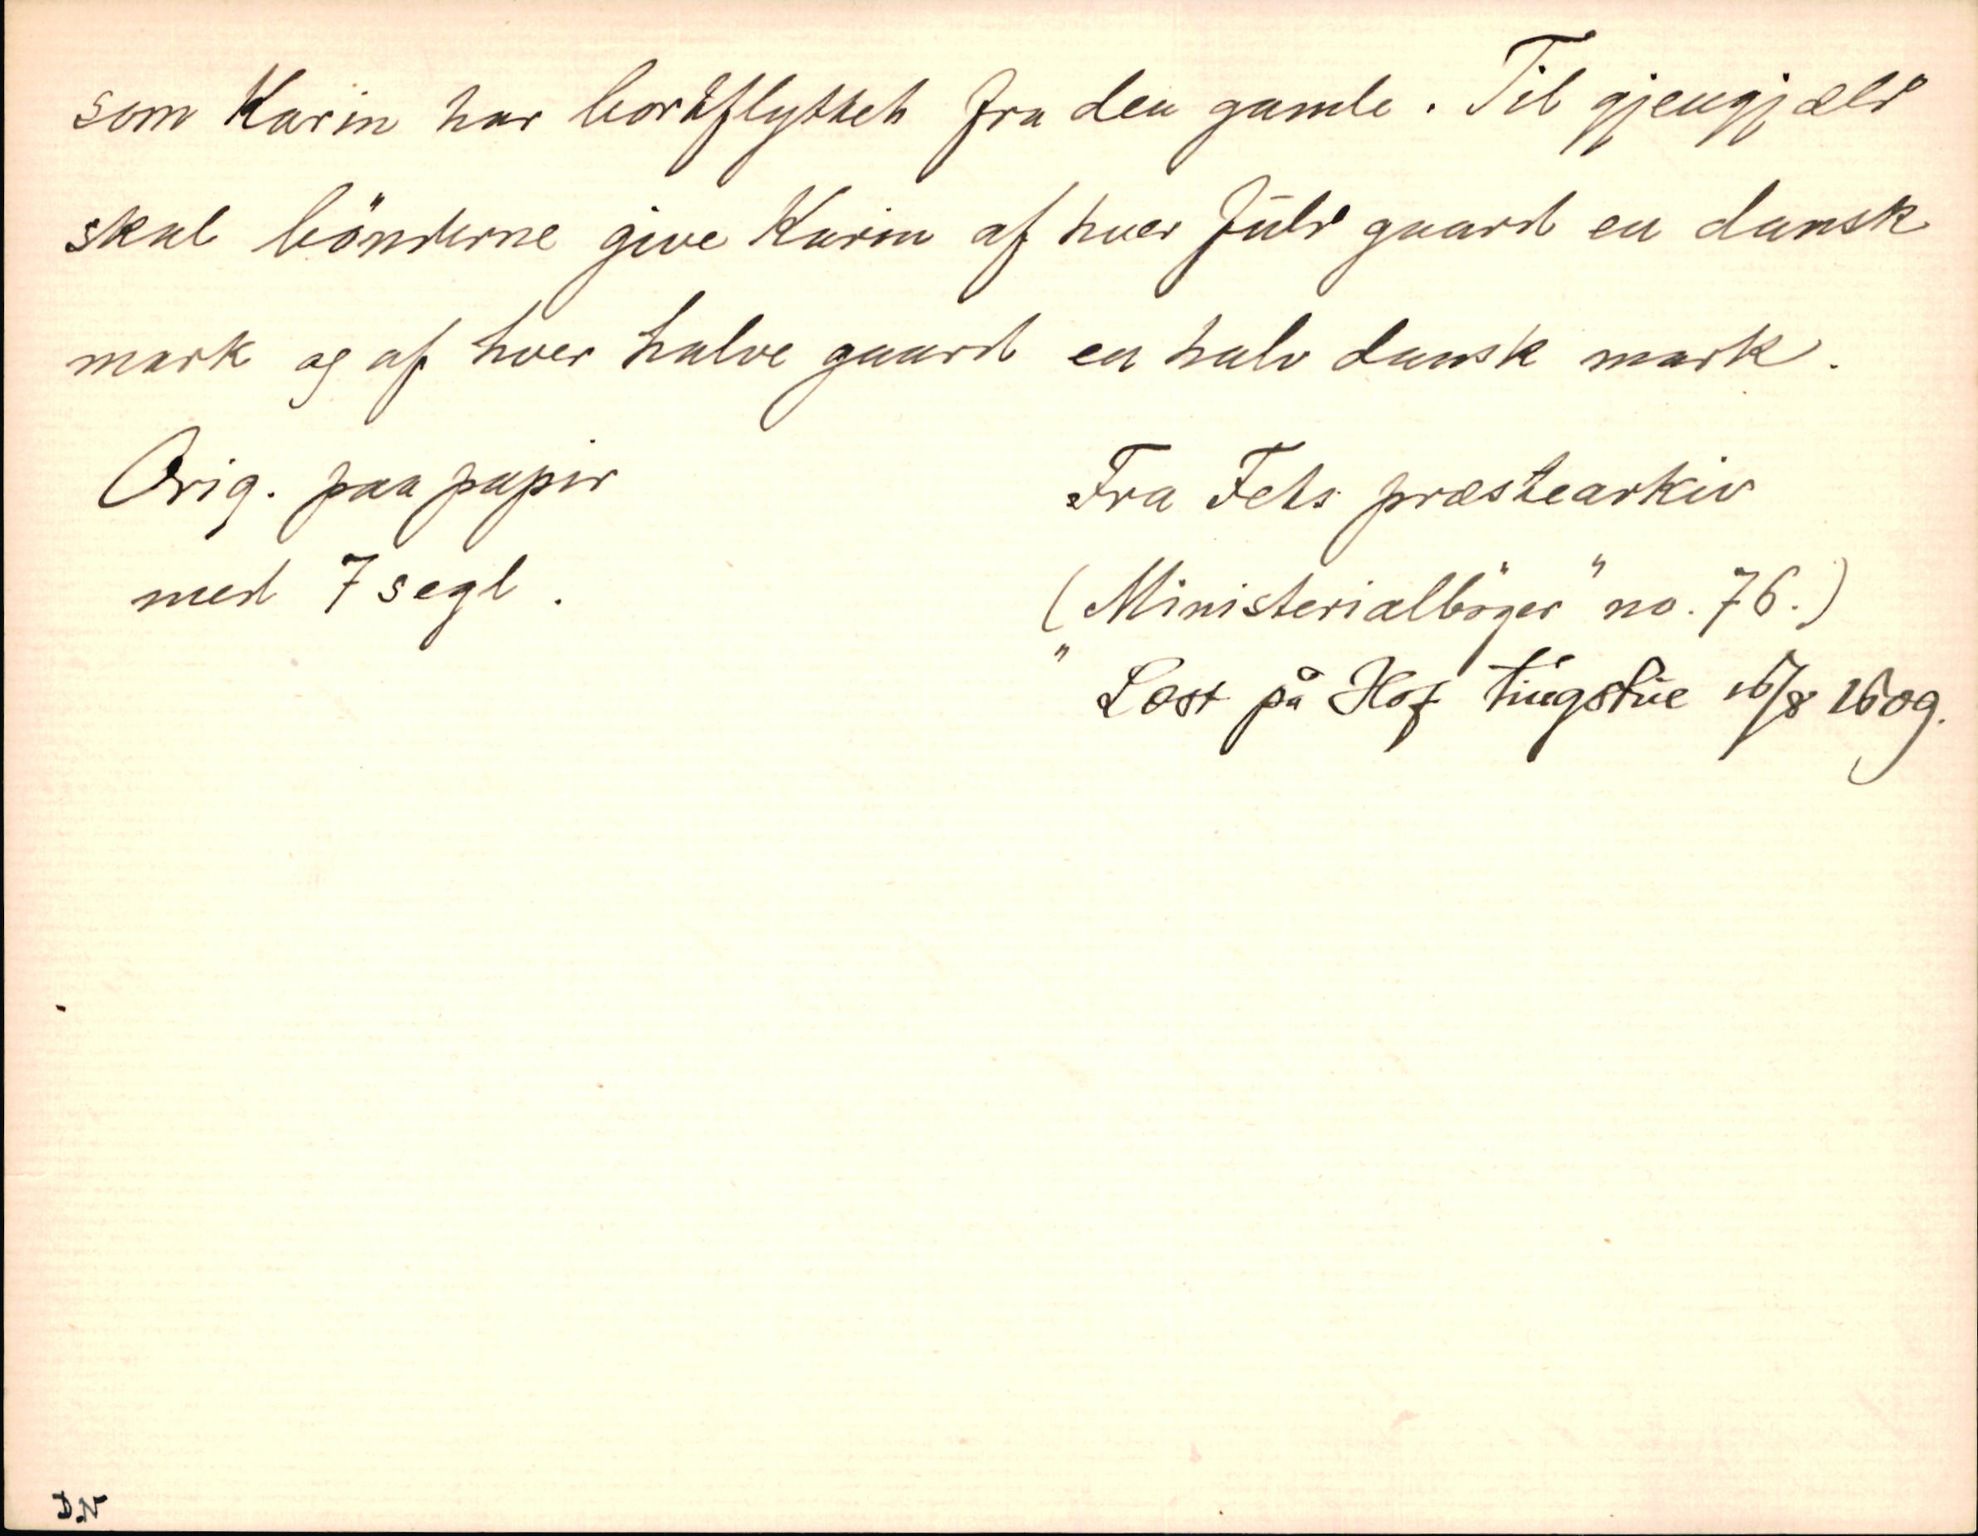 som Karin har bortflyttet fra den gamle. Til gjengjæld
skal bönderne give Karin af hver fuld gaard en dansk
mark og af hver halve gaard en halv dansk mark.
Orig. paa papir
med 7 segl.
Fra Fets præstearkiv
(„Ministerialbøger" no. 76.)
Læst på Hof tingstue 16/8 1609.
D.N